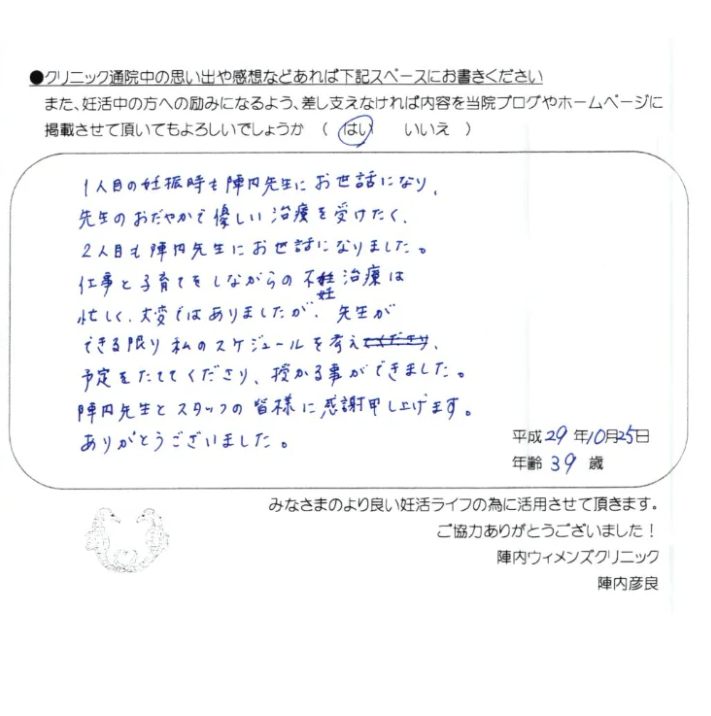 ●クリニック通院中の思い出や感想などあれば下記スペースにお書きください
また、妊活中の方への励みになるよう、差し支えなければ内容を当院ブログやホームページに
掲載させて頂いてもよろしいでしょうか （ はい いいえ ）
1人目の妊娠時も陣内先生にお世話になり、
先生のおだやかで優しい治療を受けたく、
2人目も陣内先生にお世話になりました。
仕事と子育てをしながらの不妊治療は
忙しく、大変ではありましたが、先生が
できる限り私のスケジュールを考えてくださり、
予定をたててくださり、授かる事ができました。
陣内先生とスタッフの皆様に感謝申し上げます。
ありがとうございました。
平成29年10月25日
年齢 39 歳
みなさまのより良い妊活ライフの為に活用させて頂きます。
ご協力ありがとうございました！
陣内ウィメンズクリニック
陣内彦良